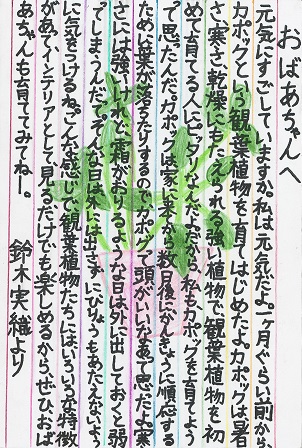 おばあちゃんへ
元気にすごしていますか。私は元気だよ。一ヶ月ぐらい前から
カポックという観葉植物を育てはじめたよ。カポックは暑
さ、寒さ、乾燥にもたえられる強い植物で、観葉植物を初
めて育てる人にピッタリなんだよ。だから、私もカポックを育てよう
って思ったんだ。カポックは家に来て数日後にかんきょうに順応する
ために葉が落ちたりするので、カポックって頭がいいなあって思ったよ。寒
さには強いけれど、霜がおりるような日は外に出しておくと弱
ってしまうんだって。そんな日は外には出さずにひりょうもあたえないよう
に気をつけるね。こんな感じで観葉植物たちにはいろいろな特徴
があってインテリアとして見るだけでも楽しめるから、ぜひ、おば
あちゃんも育ててみてねー。
鈴木実織より